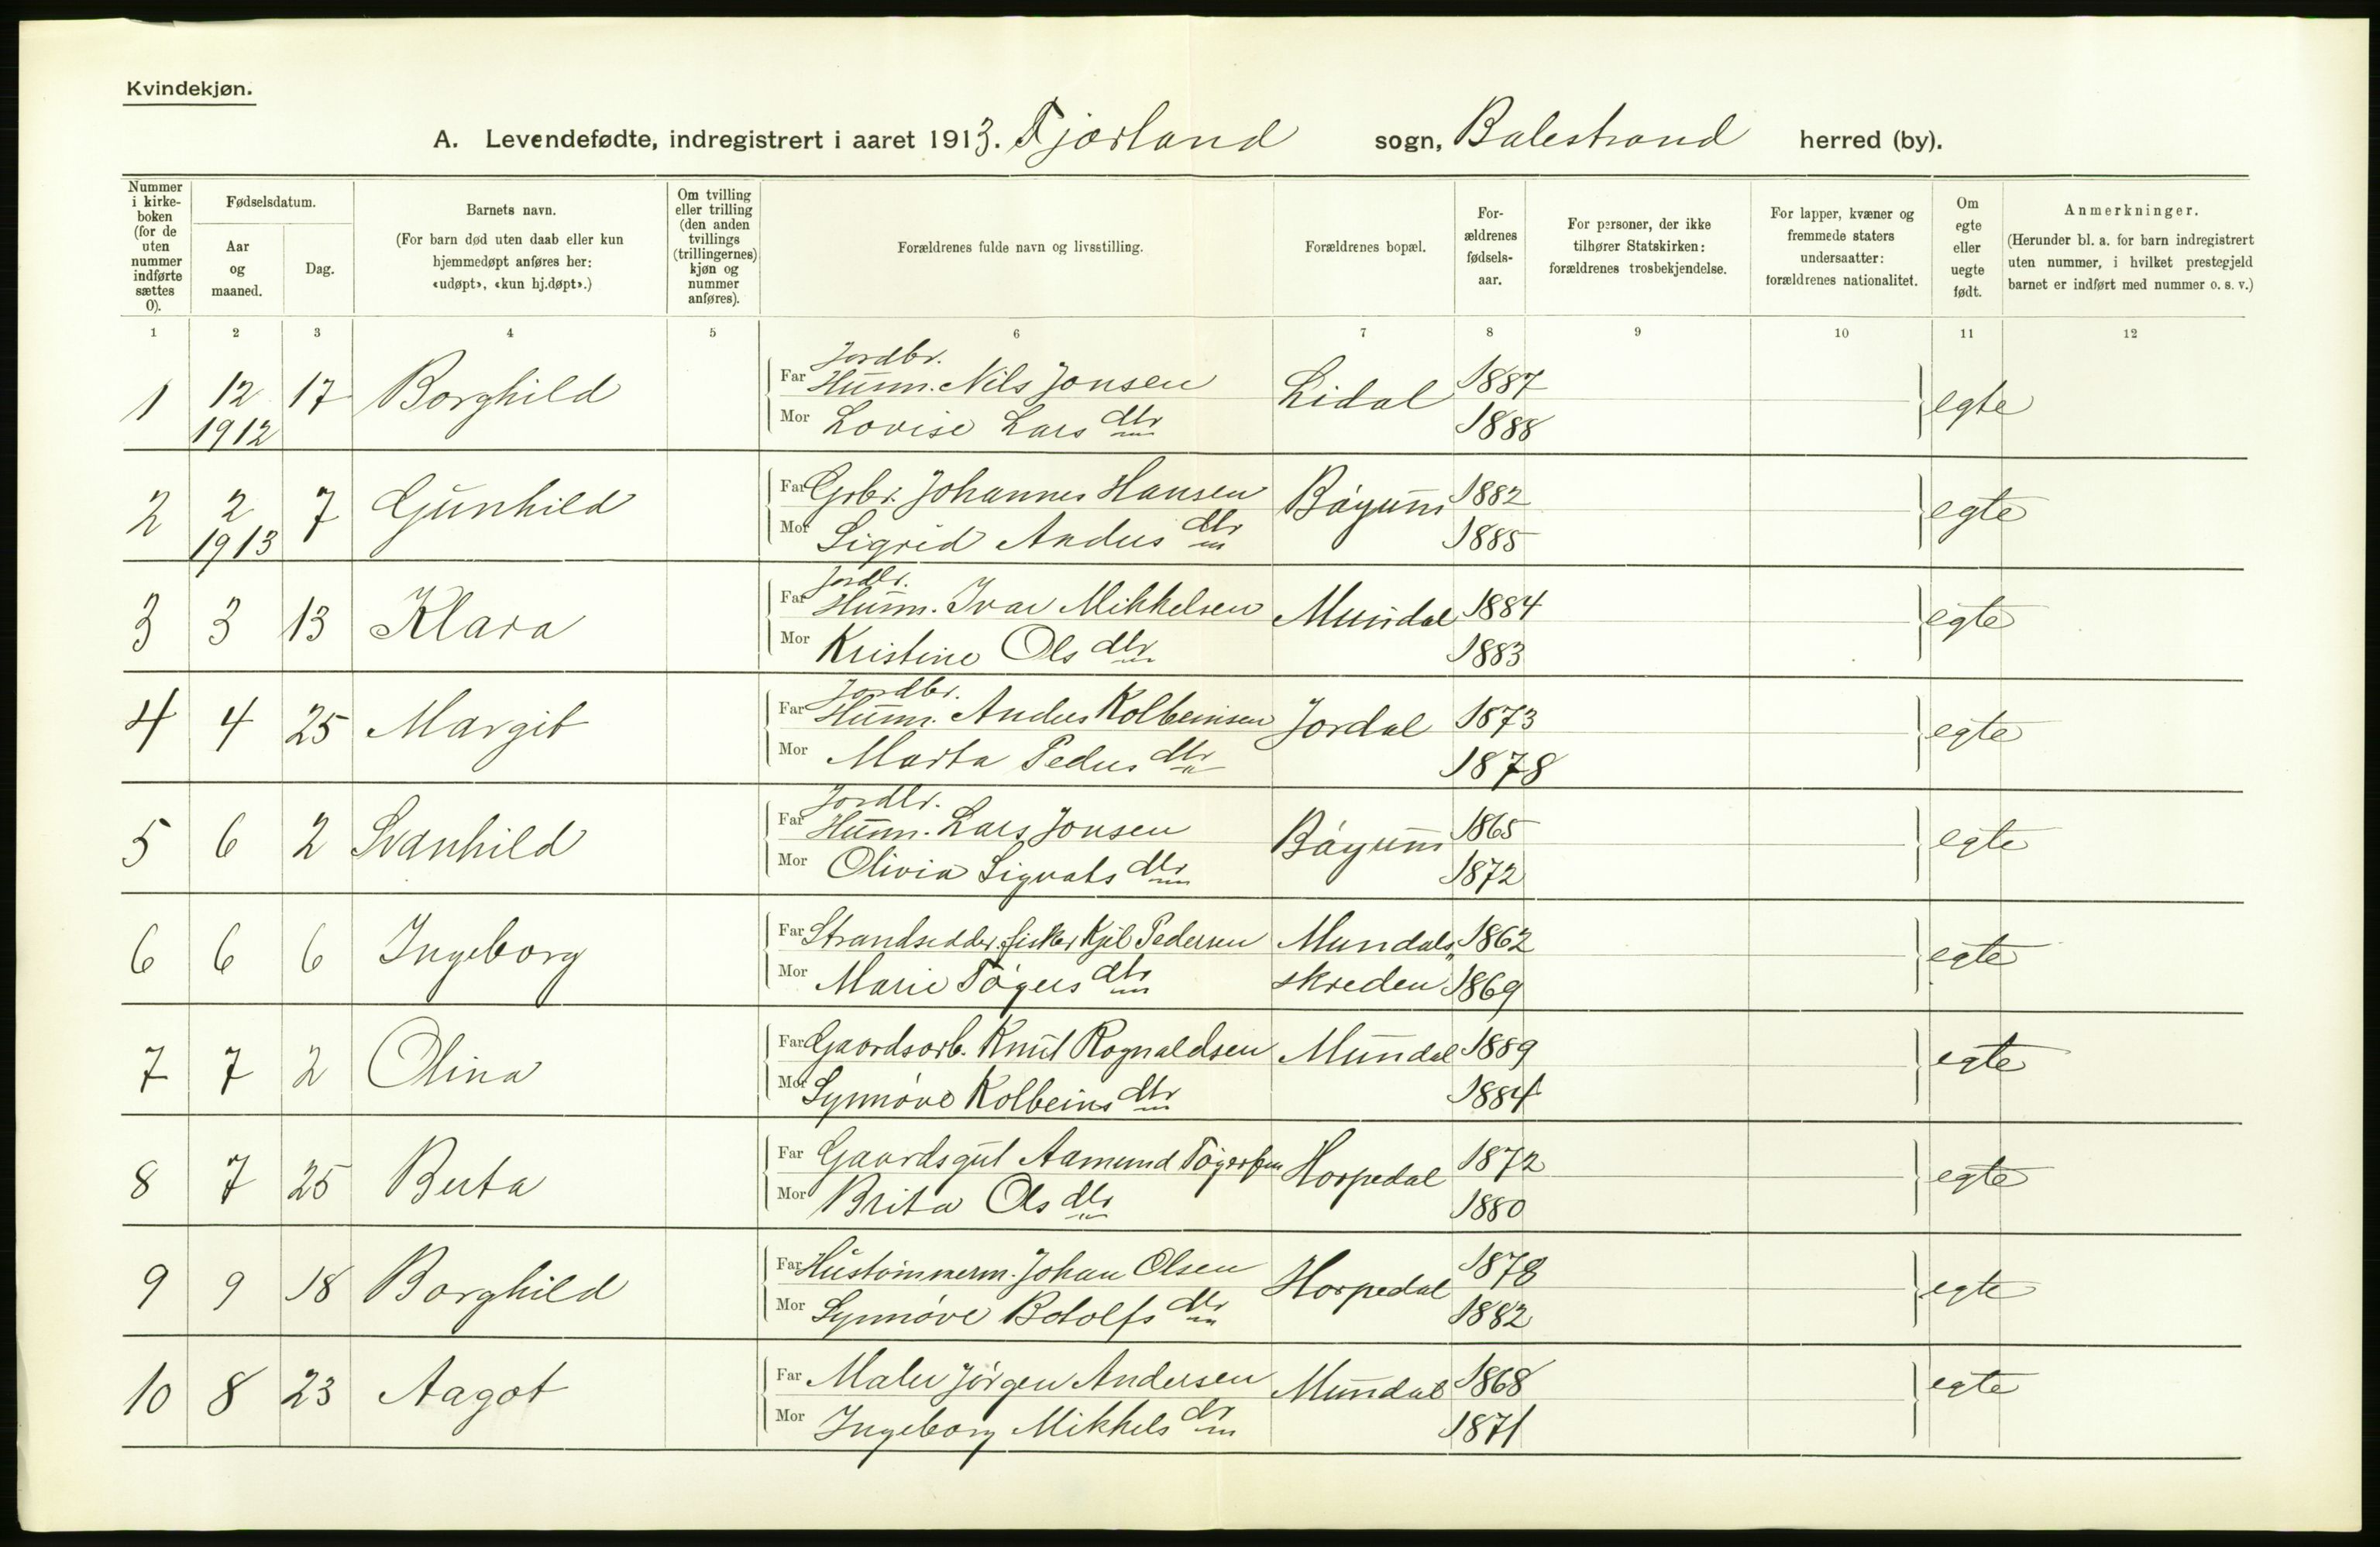 Kvindekjøn.
A. Levendefødte, indregistrert i aaret 1913. Fjærland sogn, Balestrand herred (by).
Nummer i kirke-boken (for de uten nummer indførte sættes 0).
Fødselsdatum.
Aar og maaned.
Dag.
Barnets navn.
(For barn død uten daab eller kun hjemmedøpt anføres her: «udøpt», «kun hj.døpt».)
Om tvilling eller trilling (den anden tvillings (trillingernes) kjøn og nummer anføres).
Forældrenes fulde navn og livsstilling.
Forældrenes bopæl.
For-ældrenes fødsels-aar.
For personer, der ikke tilhører Statskirken: forældrenes trosbekjendelse.
For lapper, kvæner og fremmede staters undersaatter: forældrenes nationalitet.
Om egte eller uegte født.
Anmerkninger.
(Herunder bl. a. for barn indregistrert uten nummer, i hvilket prestegjeld barnet er indført med nummer o. s. v.)
1 2 3 4 5 6 7 8 9 10 11 12
Jordbr.
1 12 17 Borghild Far Husm. Nils Jonsen Lidal 1887 egte
1912 Mor Lovise Lars dtr 1888
2 2 7 Gunhild Far Grbr. Johannes Hansen Bøyum 1882 egte
1913 Mor Sigrid Anders dtr 1885
Jordbr.
3 3 13 Klara Far Husm. Ivar Mikkelsen Mundal 1884 egte
Mor Kristine Ols dtr 1883
Jordbr.
4 4 25 Margit Far Husm. Anders Kolbeinsen Jordal 1873 egte
Mor Marta Peders dtr 1878
Jordbr.
5 6 2 Svanhild Far Husm. Lars Jonsen Bøyum 1865 egte
Mor Olivia Sigvats dtr 1872
6 6 6 Ingeborg Far Strandsidder, fisker Kjel Pedersen Mundals- 1862 egte
Mor Marie Tøgers dtr skreden 1869
7 7 2 Olina Far Gaardsarb. Knut Ragnaldsen Mundal 1889 egte
Mor Synnøve Kolbeins dtr 1884
8 7 25 Berta Far Gaardsgut Aamund Tøgersen Horpedal 1872 egte
Mor Brita Ols dtr 1880
9 9 18 Borghild Far Hustømmerm. Johan Olsen Horpedal 1878 egte
Mor Synnøve Botolfs dtr 1882
10 8 23 Aagot Far Maler Jørgen Andersen Mundal 1868 egte
Mor Ingeborg Mikkels dtr 1871